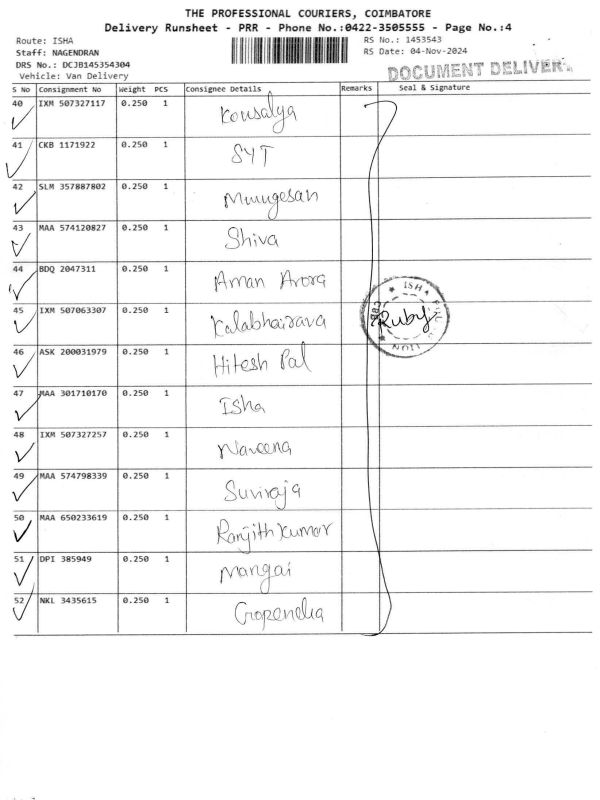 THE PROFESSIONAL COURIERS, COIMBATORE
Delivery Runsheet - PRR - Phone No.:0422-3505555 - Page No.:4
Route: ISHA
RS No.: 1453543
Staff: NAGENDRAN
RS Date: 04-Nov-2024
DRS No.: DCJB145354304
Vehicle: Van Delivery
DOCUMENT DELIVER
S No Consignment No Weight PCS Consignee Details Remarks Seal & Signature
40 IXM 507327117 0.250 1 Kousalya
41 CKB 1171922 0.250 1 SYT
42 SLM 357887802 0.250 1 Murugesan
43 MAA 574120827 0.250 1 Shiva
44 BDQ 2047311 0.250 1 Aman Arora
45 IXM 507063307 0.250 1 Kalabhairava
46 ASK 200031979 0.250 1 Hitesh Pal
47 MAA 301710170 0.250 1 Isha
48 IXM 507327257 0.250 1 Naveena
49 MAA 574798339 0.250 1 Suriraja
50 MAA 650233619 0.250 1 Ranjith Kumar
51 DPI 385949 0.250 1 Mangai
52 NKL 3435615 0.250 1
ISH
Ruby